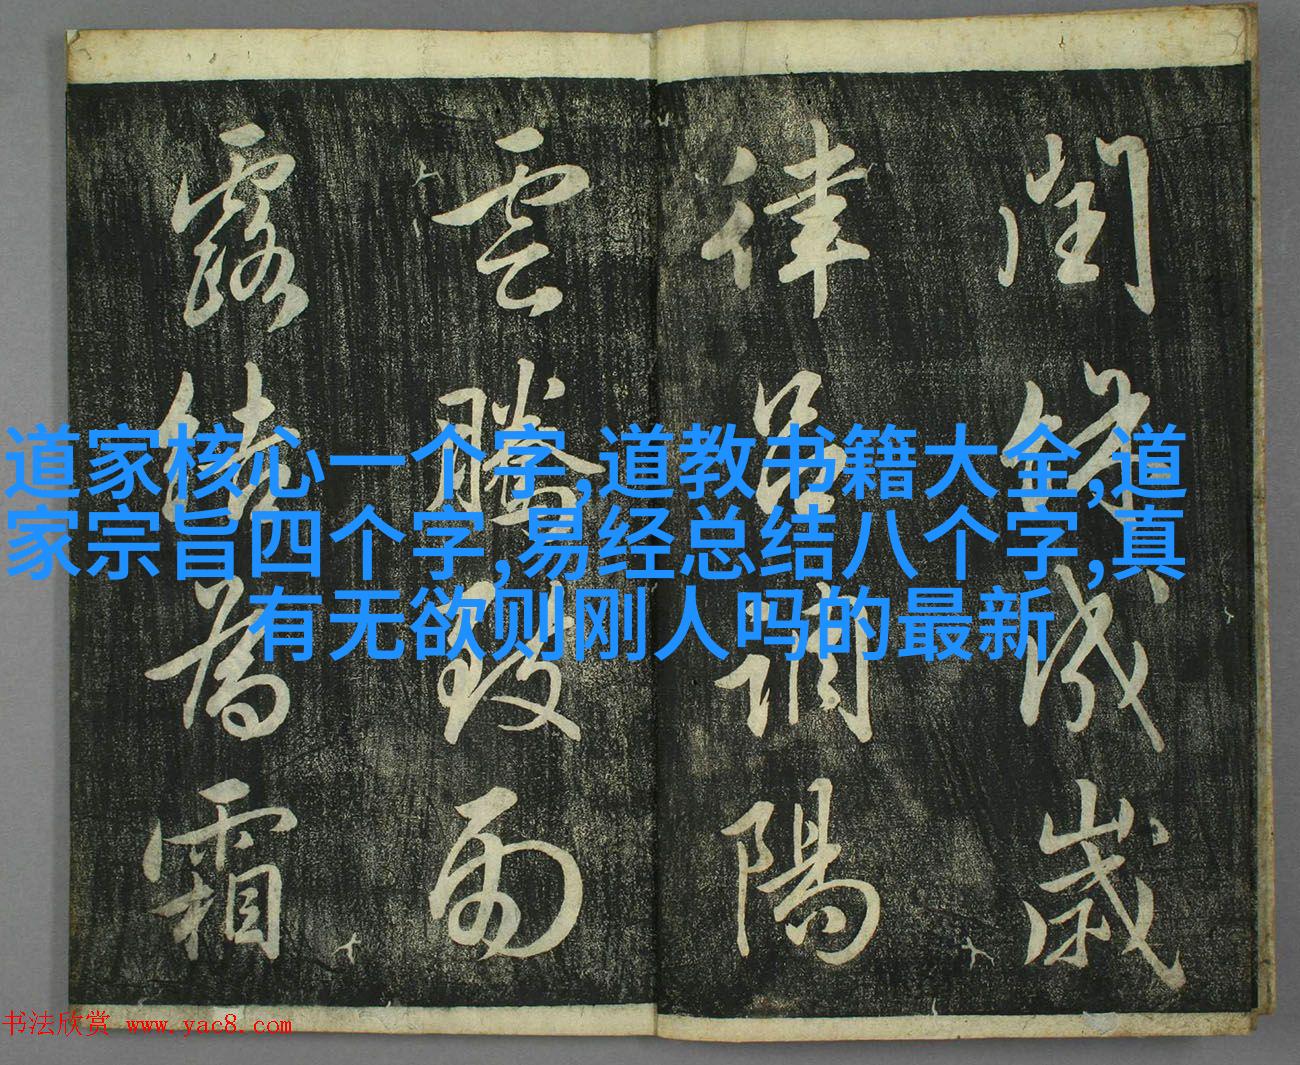 閏餘成歲
律吕調陽
雲騰致雨
露結為霜
道家核心一个字,道教书籍大全,道
家宗旨四个字,易经总结八个字,真
有无欲则刚人吗的最新
书法欣赏 www.yac8.com